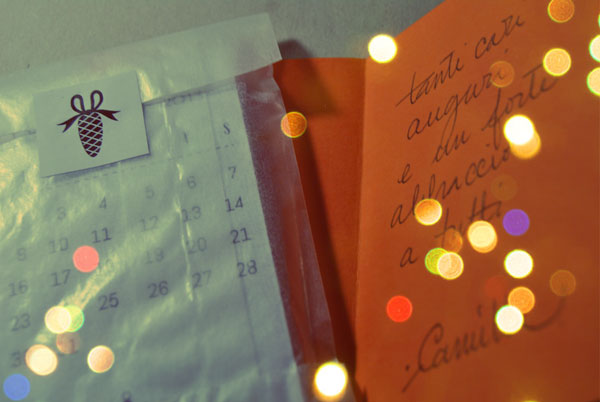 S
3 4 5 6 7
9 10 11 12 13 14
16 17 19 20 21
23 25 26 27 28
tanti cari
auguri
e un forte
abbraccio
a tutti
Camilla